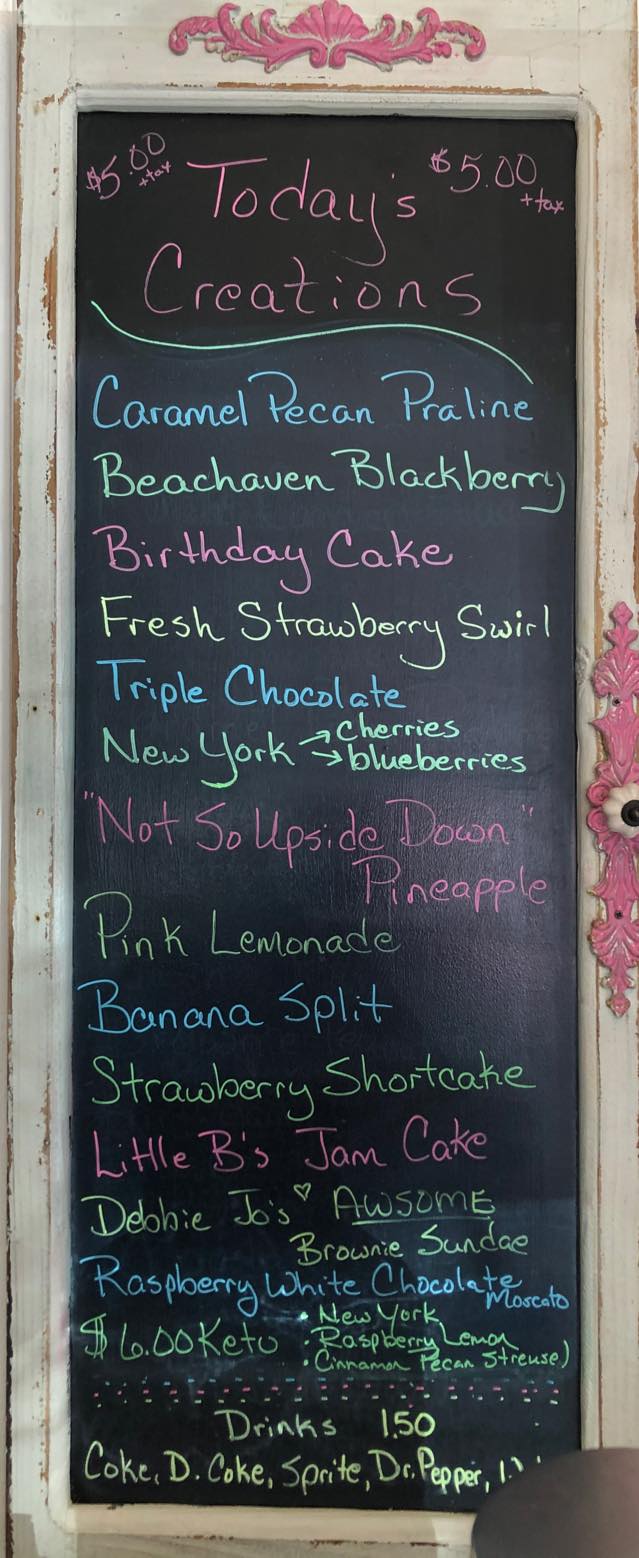 $5.00 +tax Today's $5.00 +tax
Creations
Caramel Pecan Praline
Beachaven Blackberry
Birthday Cake
Fresh Strawberry Swirl
Triple Chocolate
New York → cherries
→ blueberries
"Not So Upside Down"
Pineapple
Pink Lemonade
Banana Split
Strawberry Shortcake
Little B's Jam Cake
Debbie Jo's ♡ AWSOME
Brownie Sundae
Raspberry White Chocolate
Moscato
$6.00 Keto • New York
• Raspberry Lemon
• Cinnamon Pecan Streusel
Drinks 1.50
Coke, D. Coke, Sprite, Dr. Pepper,